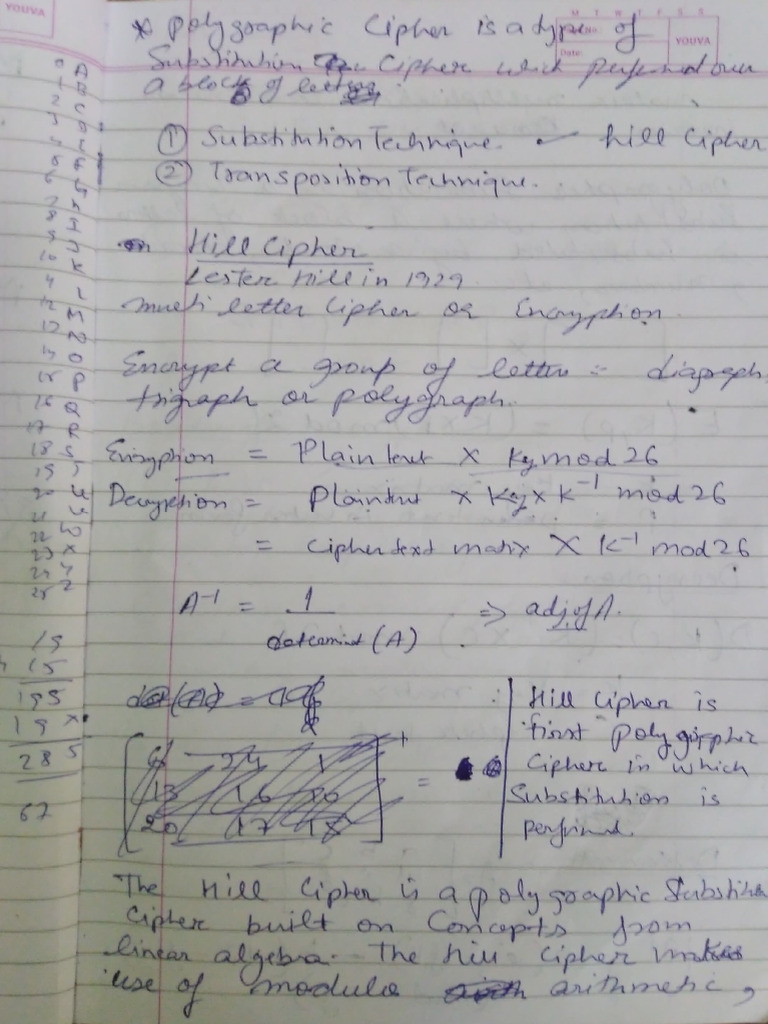 YOUVA
M T W T F S S
Page No.:
Date:
YOUVA
* Polygraphic Cipher is a type of
Substitution Cipher which perfomed over
a block of letters
① Substitution Technique. hill Cipher
② Transposition Technique.
Hill Cipher
Lester Hill in 1929
multi letter Cipher or Encryption.
Encrypt a group of letter = diagraph,
trigraph or polygraph.
Encryption = Plain text × key mod 26
Decryption = Plaintext × Key × K⁻¹ mod 26
= Ciphertext matix × K⁻¹ mod 26
A⁻¹ = 1 ⇒ adj of A.
determint (A)
0 A
1 B
2 C
3 D
4 E
5 F
6 G
7 H
8 I
9 J
10 K
11 L
12 M
13 N
14 O
15 P
16 Q
17 R
18 S
19 T
20 U
21 V
22 W
23 X
24 Y
25 Z
19
15
195
19 ×
285
67
6 24 1
13 16 10
20 17 15
=
Hill Cipher is
first polygrpphic
Cipher in which
Substitution is
perfimed.
The Hill Cipher is a polygraphic Substitution
Cipher built on Concepts from
linear algebra. The hill Cipher makes
use of modulo arithmetic,